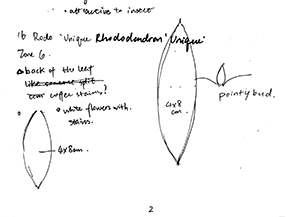 • attractive to insect
16 Rodo 'Unique Rhododendron 'Unique'
Zone 6.
• back of the leaf
like coffee stains?
• white flowers with
stains.
4x8cm
4x8
cm
pointy bud.
2